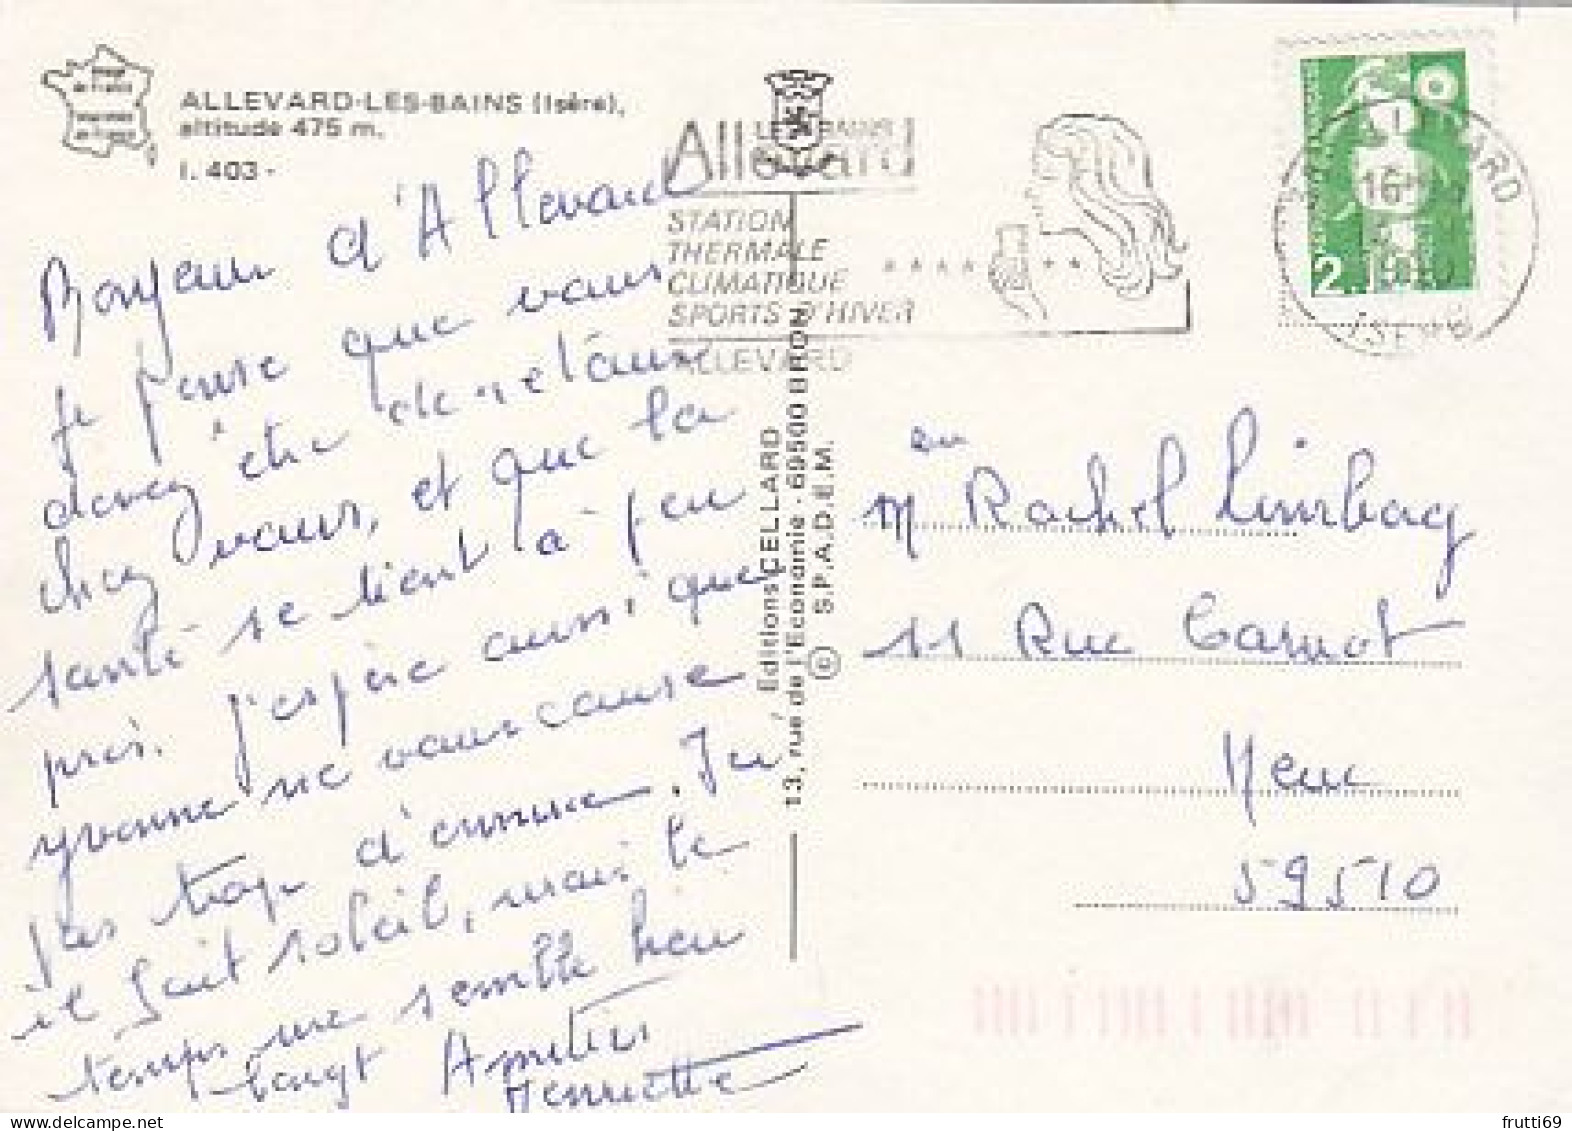 ALLEVARD-LES-BAINS (Isère),
altitude 475 m.
I. 403 -
Bonjour d'Allevard
je pense que vous
devez être de retour
chez vous, et que la
santé se tient à peu
près. J'espère aussi que
Yvonne ne vous cause
pas trop d'ennue. Ici
il fait soleil, mais le
temps me semble bien
longt Amitiés
Henriette
LES BAINS
Allevard
STATION
THERMALE
CLIMATIQUE
SPORTS D'HIVER
ALLEVARD
Editions CELLARD
13, rue de l'Economie - 69500 BRON
© S.P.A.D.E.M.
2.10
16H
ISERE
M Rachel Limbag
11 Rue Carnot
Hem
59510
frutti69